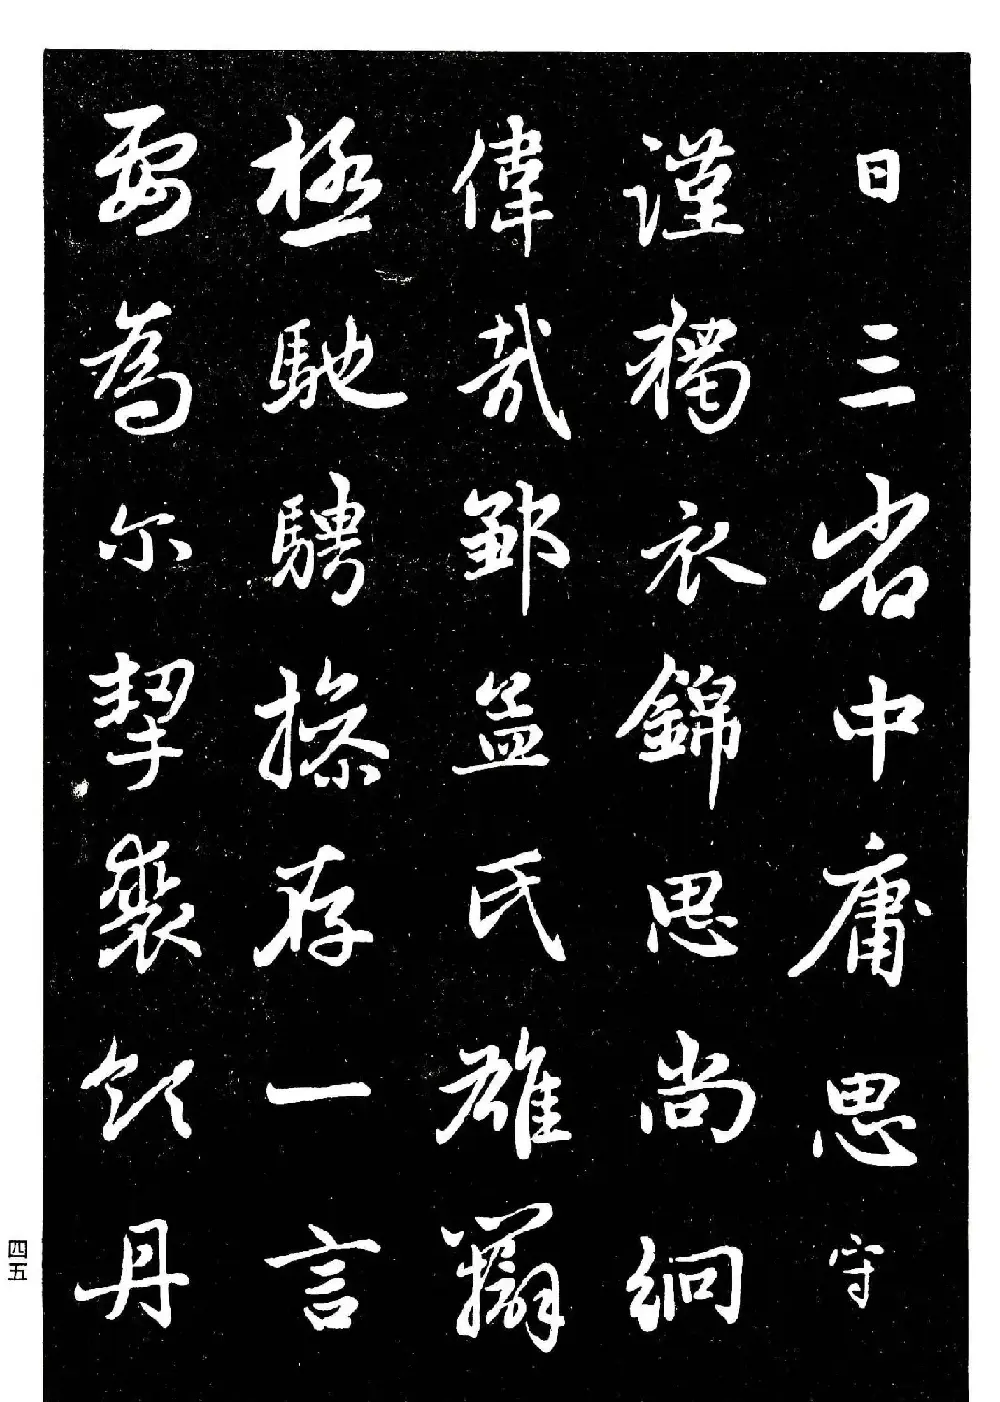 日三省中庸思守
謹獨衣錦思尚絅
偉哉鄒孟氏雄辯
極馳騁操存一言
要為尔挈裘領丹
四五